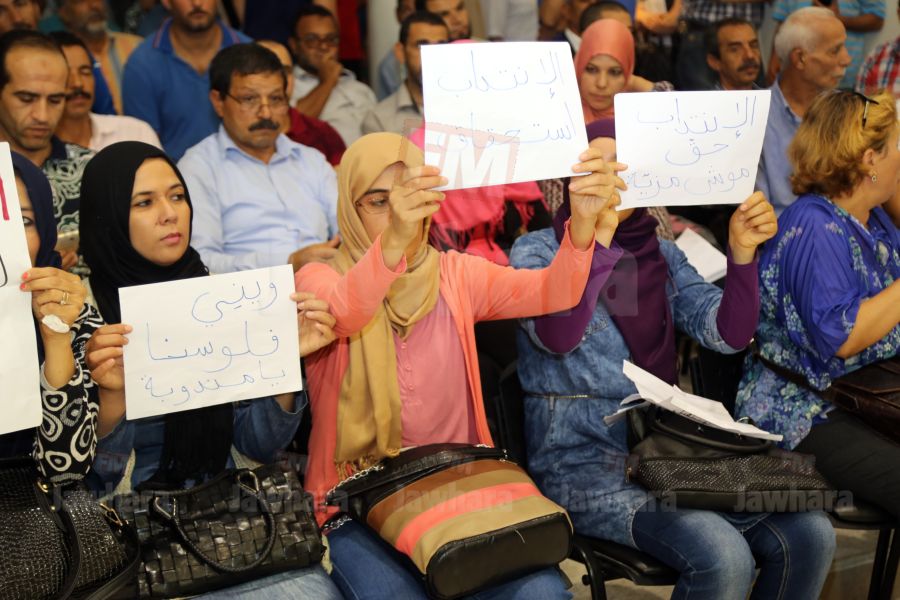 الإنتداب
استحقاق
الإنتداب
حق
موش مزيّة
ويني
فلوسنا
يا مندوبة
FM
Jawhara
Jawhara
Jawhara
Jawhara